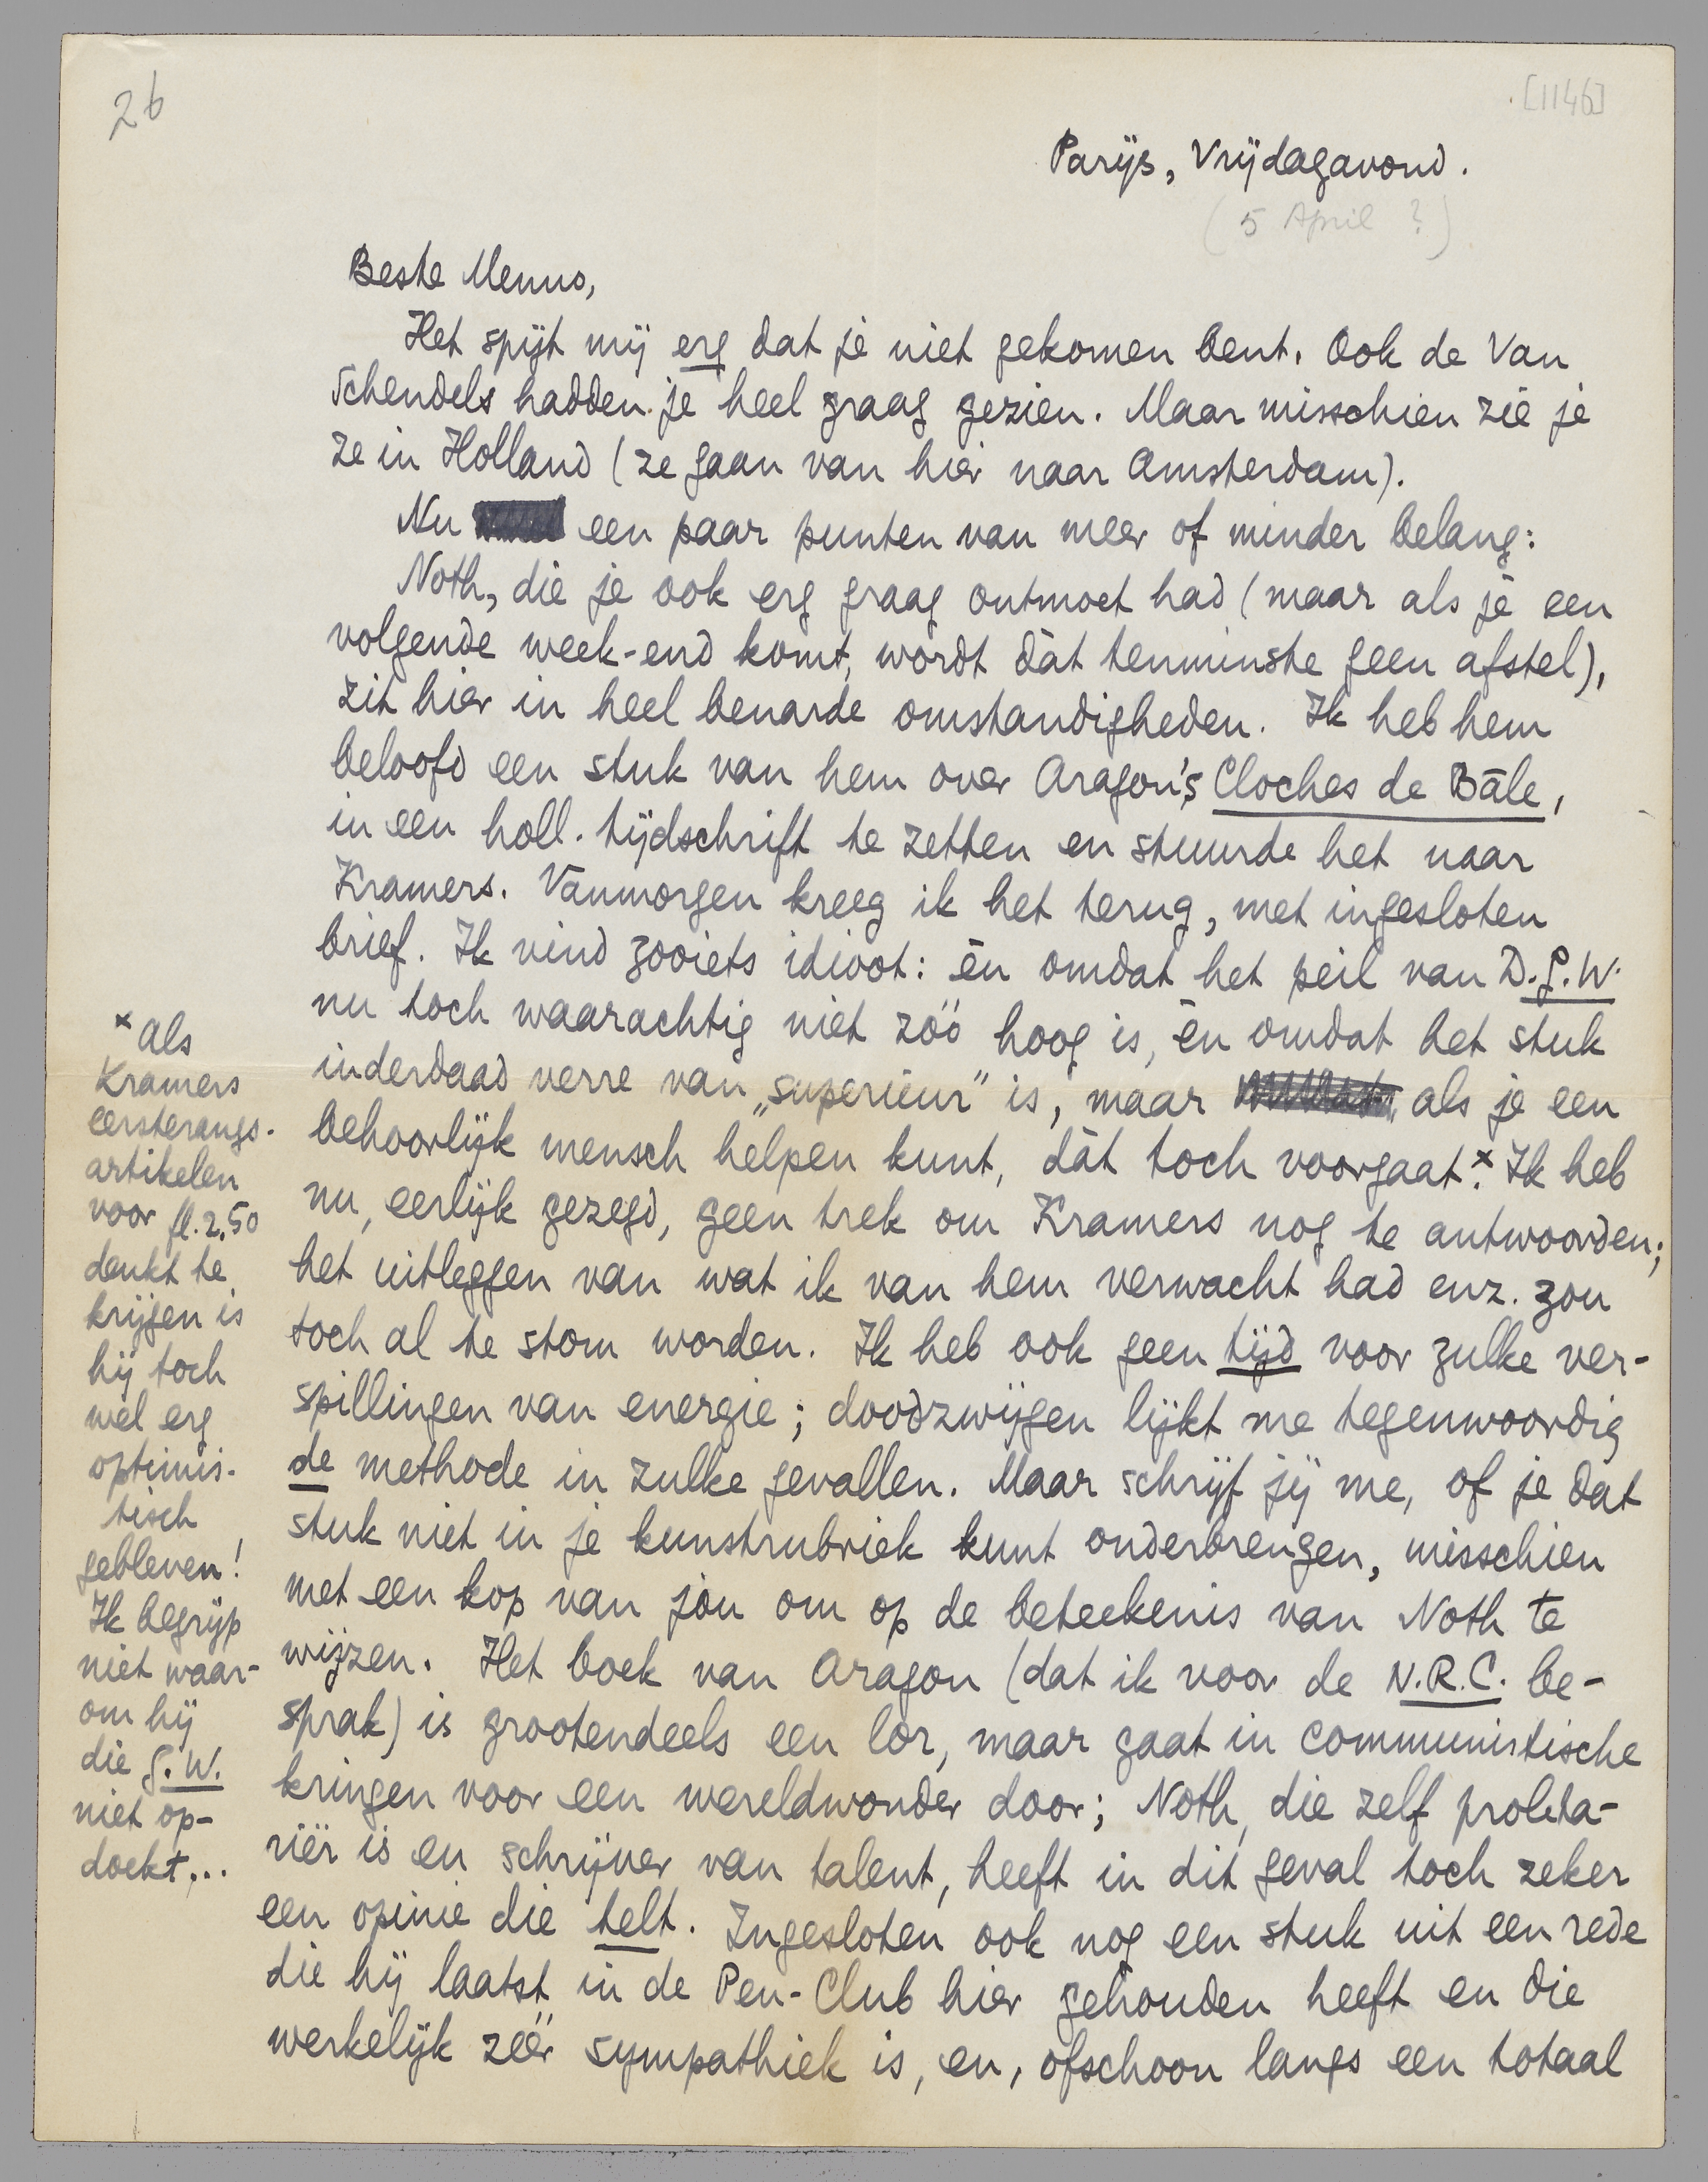 26
[1146]
Parijs, Vrijdagavond.
(5 April ?)
Beste Menno,
Het spijt mij erg dat je niet gekomen bent. Ook de Van
Schendels hadden je heel graag gezien. Maar misschien zie je
ze in Holland (ze gaan van hier naar Amsterdam).
Nu een paar punten van meer of minder belang:
Noth, die je ook erg graag ontmoet had (maar als je een
volgende week-end komt, wordt dàt tenminste geen afstel),
zit hier in heel benarde omstandigheden. Ik heb hem
beloofd een stuk van hem over Aragon's Cloches de Bâle,
in een holl. tijdschrift te zetten en stuurde het naar
Kramers. Vanmorgen kreeg ik het terug, met ingesloten
brief. Ik vind zooiets idioot: èn omdat het peil van D.G.W.
nu toch waarachtig niet zóó hoog is, èn omdat het stuk
inderdaad verre van „superieur" is, maar als je een
behoorlijk mensch helpen kunt, dàt toch voorgaat.x Ik heb
nu, eerlijk gezegd, geen trek om Kramers nog te antwoorden;
het uitleggen van wat ik van hem verwacht had enz. zou
toch al te stom worden. Ik heb ook geen tijd voor zulke ver-
spillingen van energie; doodzwijgen lijkt me tegenwoordig
de methode in zulke gevallen. Maar schrijf jij me, of je dat
stuk niet in je kunstrubriek kunt onderbrengen, misschien
met een kop van jou om op de beteekenis van Noth te
wijzen. Het boek van Aragon (dat ik voor de N.R.C. be-
sprak) is grootendeels een lor, maar gaat in communistische
kringen voor een wereldwonder door; Noth, die zelf proleta-
riër is en schrijver van talent, heeft in dit geval toch zeker
een opinie die telt. Ingesloten ook nog een stuk uit een rede
die hij laatst in de Pen-Club hier gehouden heeft en die
werkelijk zéér sympathiek is, en, ofschoon langs een totaal
x als
Kramers
eersterangs-
artikelen
voor fl. 2.50
denkt te
krijgen is
hij toch
wel erg
optimis-
tisch
gebleven!
Ik begrijp
niet waar-
om hij
die G.W.
niet op-
doekt...